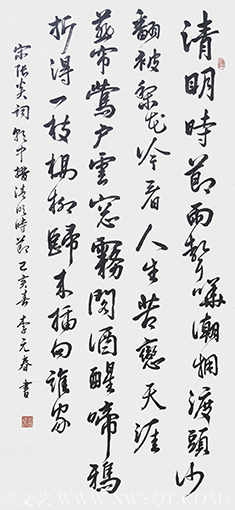 清明時節雨聲嘩潮擁渡頭沙
翻被梨花冷看人生苦戀天涯
燕帘鶯户雲窓霧閣酒醒啼鴉
折得一枝楊柳歸來插向誰家
宋張炎詞朝中措清明時節己亥春李元春書